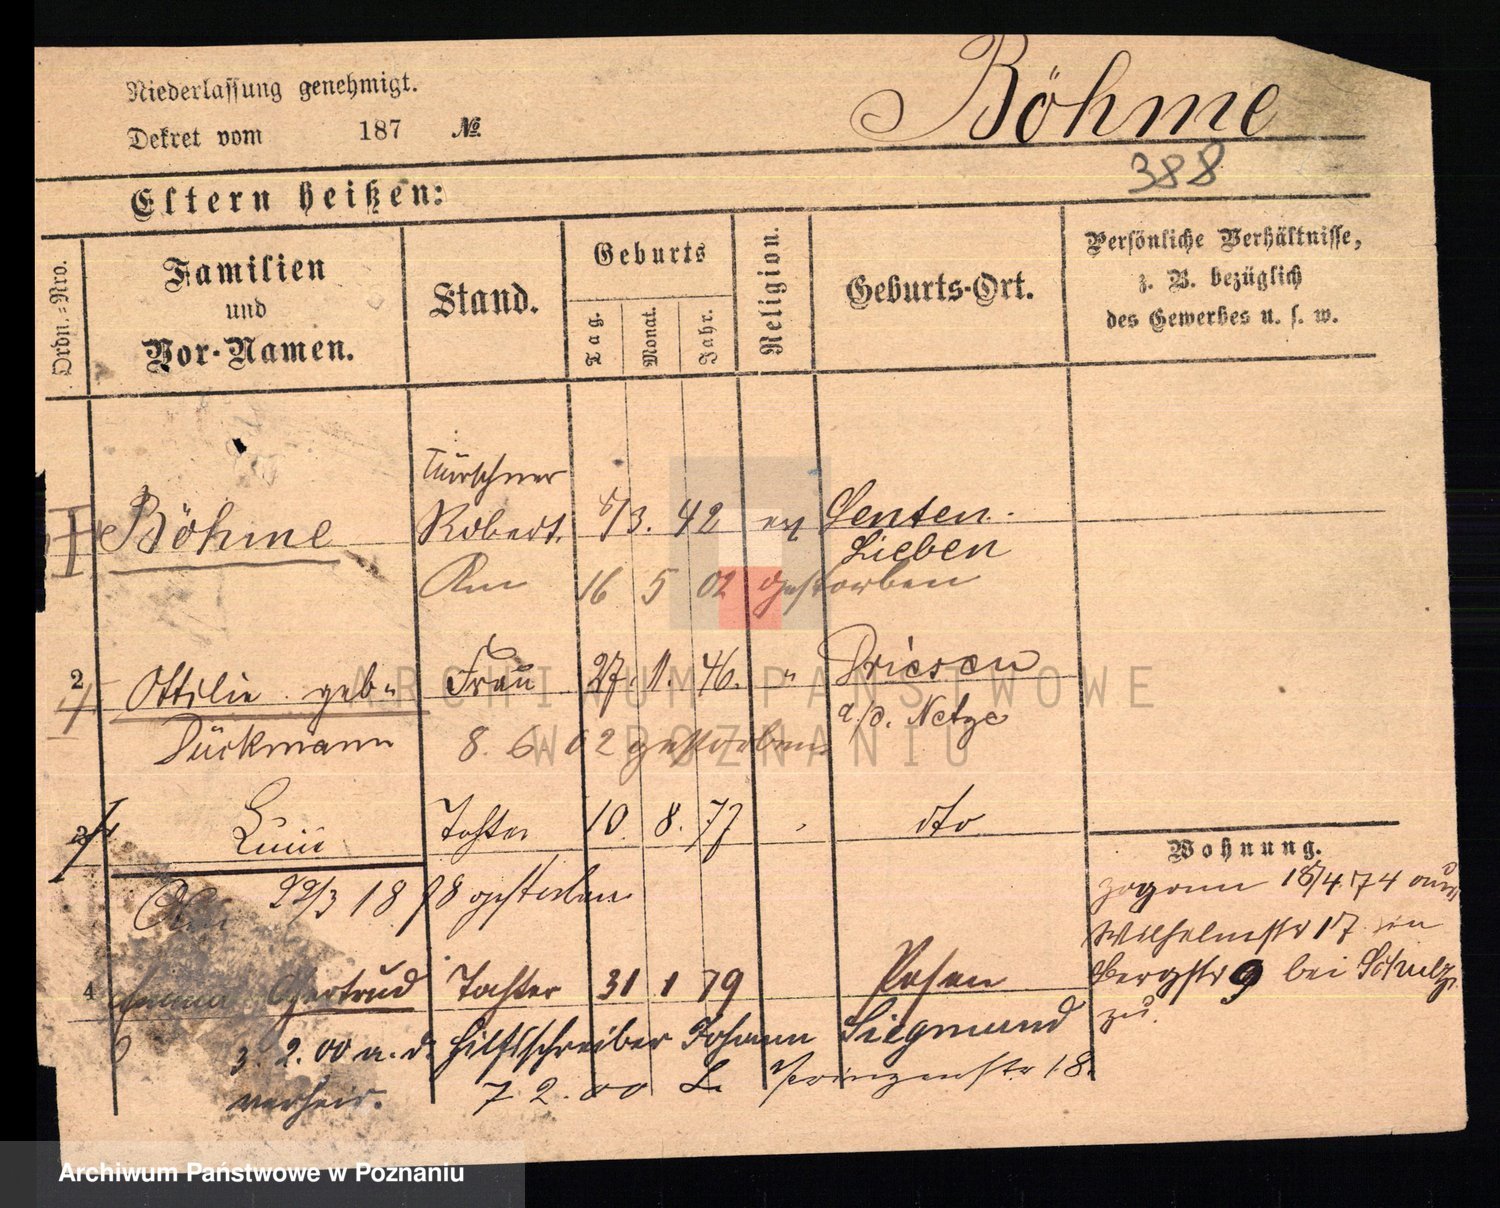 Niederlassung genehmigt.
Dekret vom 187 №
Böhme
388
Eltern heißen:
Ordn.-Nro.
Familien
und
Vor-Namen.
Stand.
Geburts
Tag.
Monat.
Jahr.
Religion.
Geburts-Ort.
Persönliche Verhältnisse,
z. B. bezüglich
des Gewerbes u. s. w.
Böhme Robert. 8/3. 42 ev Senten
Lieben
Am 16 5 02 gestorben
2 Ottilie geb. Frau 27. 1. 46. " Driesen
Dückmann a/d. Netze
8. 6 02 gestorben
3 Tochter 10. 8. 77 dto
Am 22/3 1898 gestorben
4 Emma Gertrud Tochter 31 1 79 Posen
3. 2. 00 a. d. Hilfsschreiber Johann Siegmund
verheir. 7 2. 00 L. Prinzenstr. 18.
Wohnung.
zogen 18/4 74 aus
Wilhelmstr 17 in
Bergstr 9 bei Schulz
zu.
ARCHIWUM PAŃSTWOWE
W POZNANIU
Archiwum Państwowe w Poznaniu